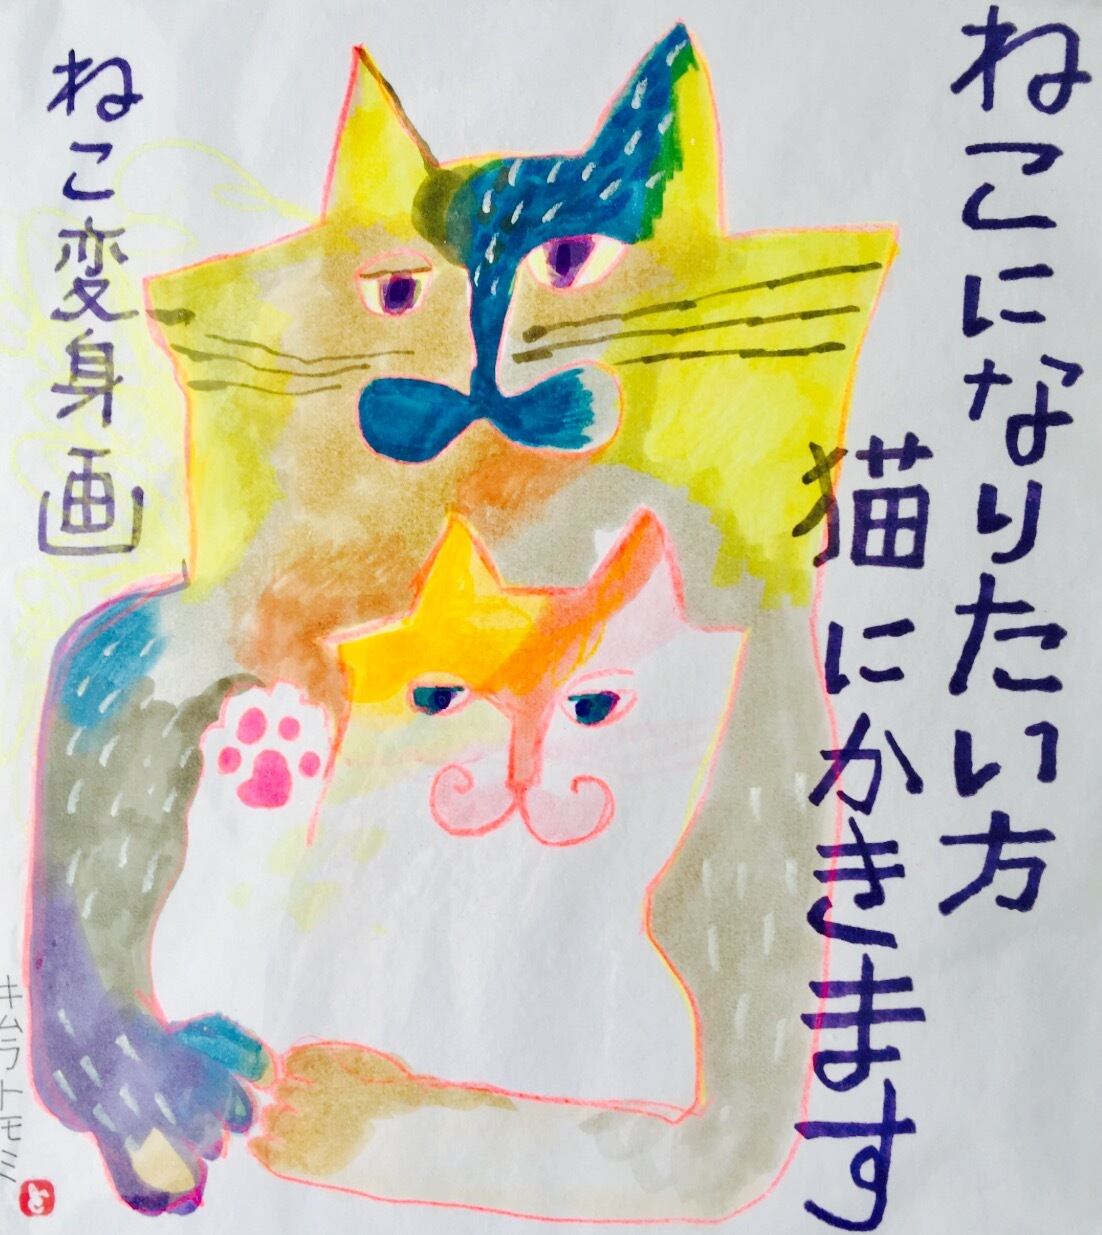 ねこになりたい方
猫にかきます
ねこ変身画
キムラトモミ
と